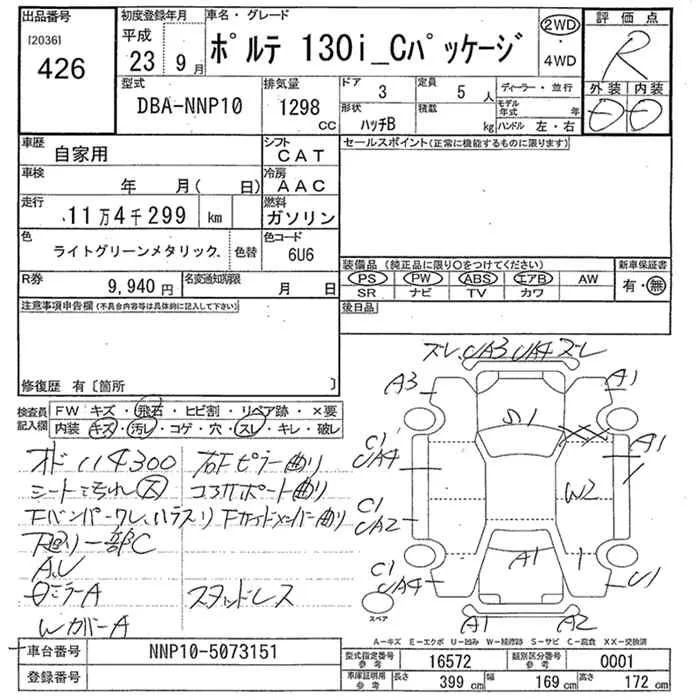 出品番号
[2036]
426
初度登録年月
平成
23年9月
車名・グレード
ポルテ 130i_Cパッケージ
2WD
・
4WD
評価点
R
外装 内装
型式
DBA-NNP10
排気量
1298
CC
ドア 3
定員 5人
形状
ハッチB
積載
kg
ディーラー・並行
モデル年式 年
ハンドル 左・右
車歴
自家用
シフト
CAT
セールスポイント(正常に機能するものに限ります)
車検
年 月( 日)
冷房
AAC
走行
11万4千299 km
燃料
ガソリン
色
ライトグリーンメタリック.
色替
色コード
6U6
装備品 (純正品に限り○をつけてください)
新車保証書
PS PW ABS エアB AW
有・無
SR ナビ TV カワ
R券
9,940円
名変通知期限
月 日
後日品
注意事項申告欄(不具合内容等は具体的に記入して下さい)
修復歴 有〔箇所 〕
検査員
記入欄
FW キズ・飛石・ヒビ割・リペア跡・×要
内装 キズ・汚レ・コゲ・穴・スレ・キレ・破レ
オド 114300 右Fピラー曲り
シート汚れ大 コアサポート曲り
Fバンパーワレ、ハラスリ Fサイドメンバー曲り
下廻り一部C
A,U
ミラーA スタッドレス
WカバーA
ズレ UA3 UA4 ズレ
A3
A1
S1
C1
UA4
A1
W2
C1
UA2
A1
C1
UA4
U1
スペア
A1
A2
A-キズ E-エクボ U-凹み W-補修跡 S-サビ C-腐食 XX-交換済
車台番号
NNP10-5073151
登録番号
型式指定番号
参考
16572
類別区分番号
参考
0001
車庫証明用
参考
長さ 399 cm
幅 169 cm
高さ 172 cm